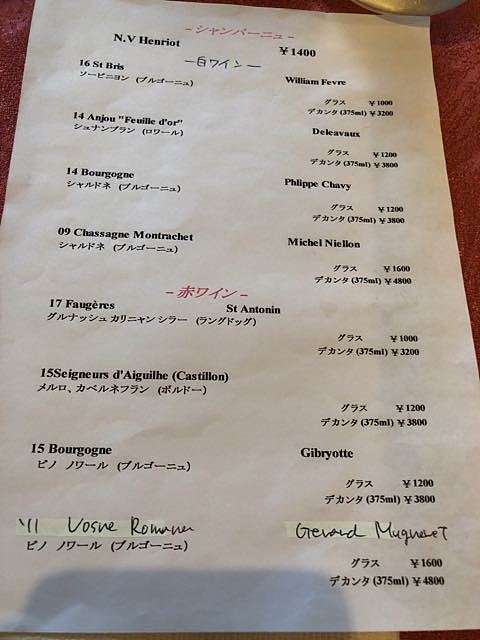 - シャンパーニュ -
N.V Henriot ￥1400
ー白ワインー
16 St Bris William Fevre
ソービニヨン (ブルゴーニュ)
グラス ￥1000
デカンタ (375ml) ￥3200
14 Anjou "Feuille d'or" Deleavaux
シュナンブラン (ロワール)
グラス ￥1200
デカンタ (375ml) ￥3800
14 Bourgogne Phlippe Chavy
シャルドネ (ブルゴーニュ)
グラス ￥1200
デカンタ (375ml) ￥3800
09 Chassagne Montrachet Michel Niellon
シャルドネ (ブルゴーニュ)
グラス ￥1600
デカンタ (375ml) ￥4800
- 赤ワイン -
17 Faugères St Antonin
グルナッシュ カリニャン シラー (ラングドッグ)
グラス ￥1000
デカンタ (375ml) ￥3200
15Seigneurs d'Aiguilhe (Castillon)
メルロ、カベルネフラン (ボルドー)
グラス ￥1200
デカンタ (375ml) ￥3800
15 Bourgogne Gibryotte
ピノ ノワール (ブルゴーニュ)
グラス ￥1200
デカンタ (375ml) ￥3800
'11 Vosne Romanee Gerard Mugneret
ピノ ノワール (ブルゴーニュ)
グラス ￥1600
デカンタ (375ml) ￥4800